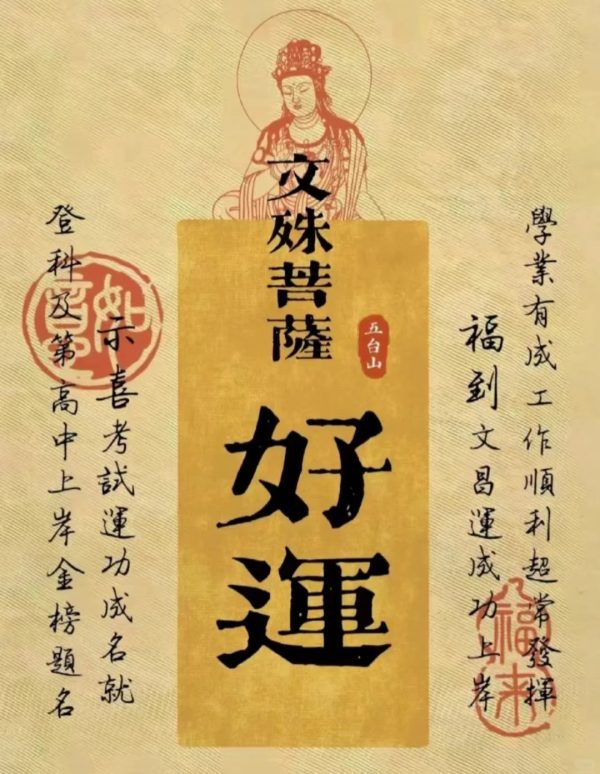 學業有成工作順利超常發揮
福到文昌運成功上岸
文殊菩薩
五台山
好運
示喜考試運功成名就
登科及第高中上岸金榜題名
如意
福來